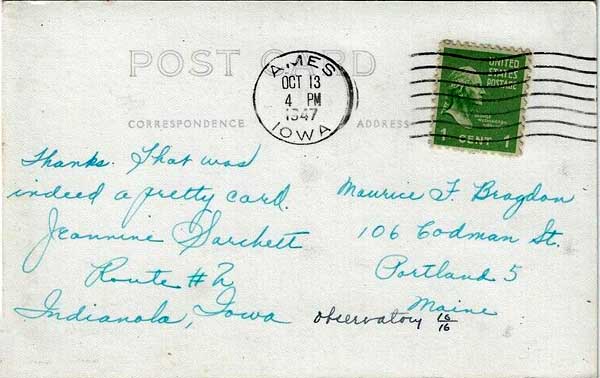 POST CARD
AMES
OCT 13
4 PM
1947
IOWA
UNITED
STATES
POSTAGE
1 CENT 1
CORRESPONDENCE
ADDRESS
Thanks. That was
indeed a pretty card.
Jeannine Sarchett
Route #2
Indianola, Iowa
Maurice F. Bragdon
106 Codman St.
Portland 5
Maine
Observatory 10/16